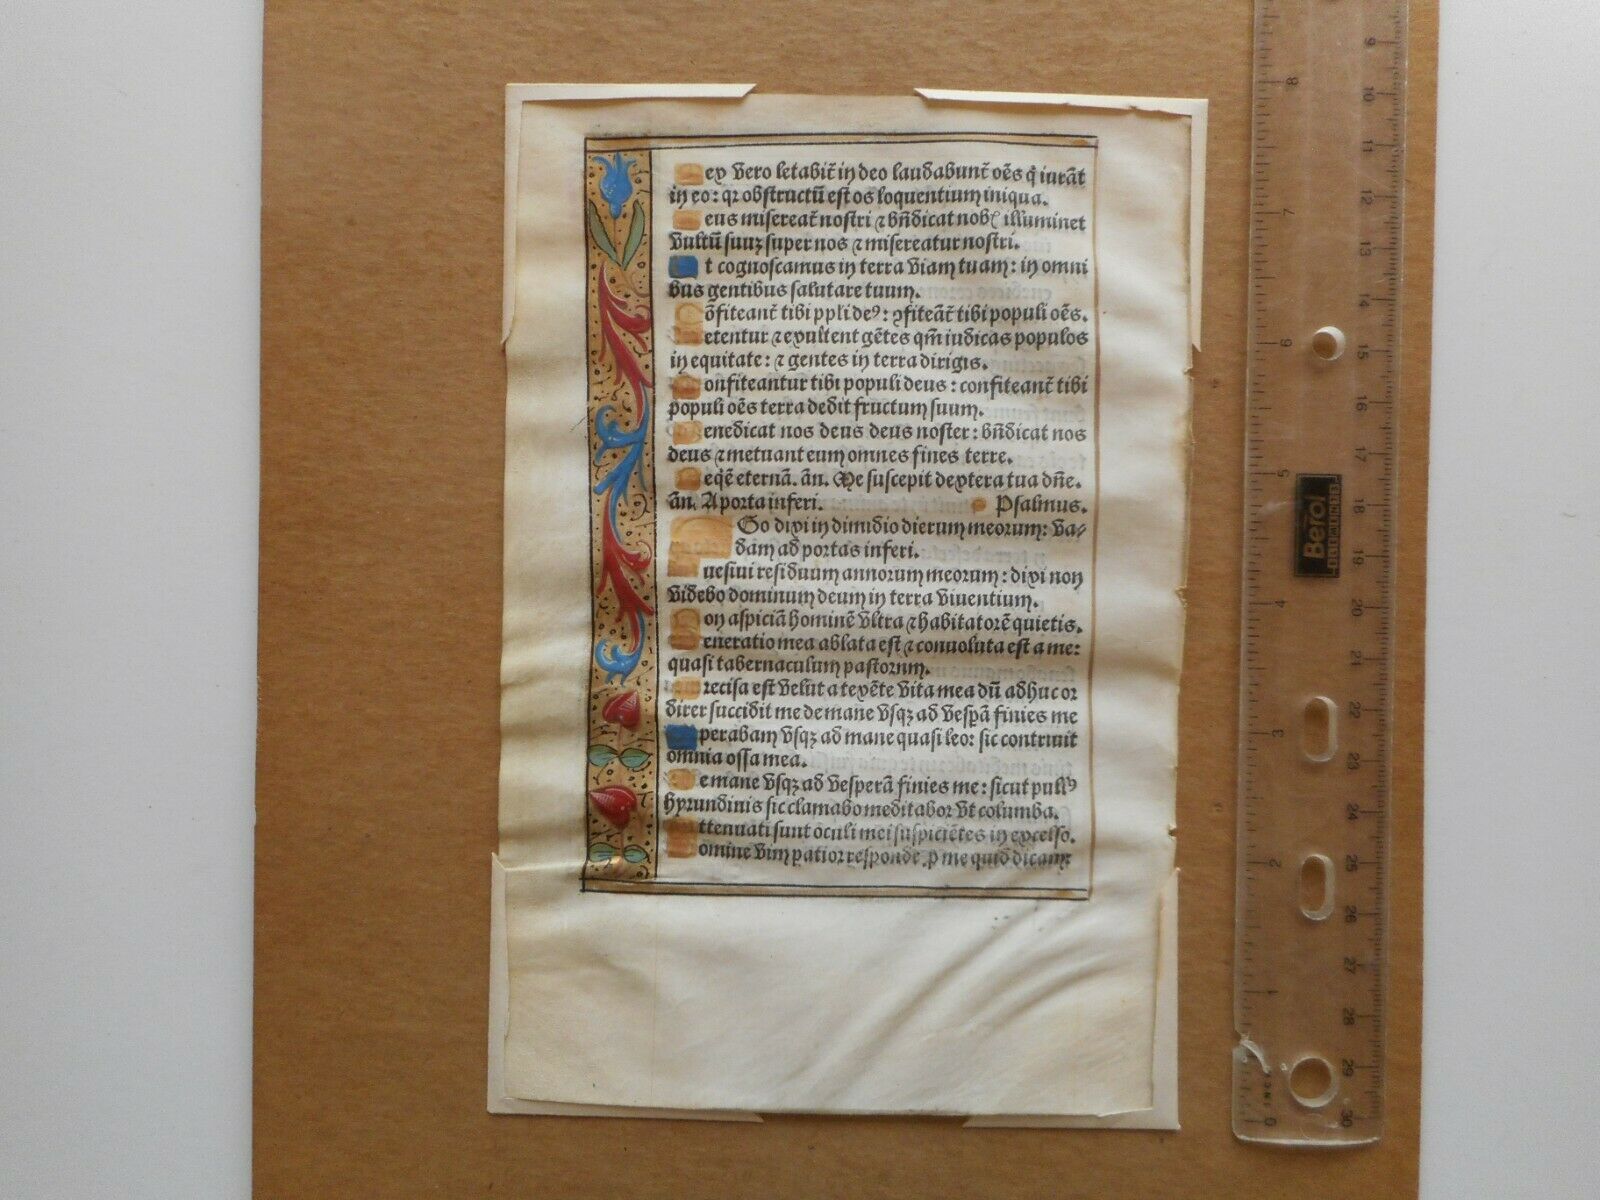 ex vero letabit̄ in deo laudabunt̄ oēs q̇ iurāt
in eo: qꝛ obstructū est os loquentium iniqua.
eus misereat̄ nostri ⁊ bn̄dicat nob illuminet
vultū suuꝫ super nos ⁊ misereatur nostri.
t cognoscamus in terra viam tuam: in omni
bus gentibus salutare tuum.
ōfiteant̄ tibi ppli deꝰ: ꝯfiteāt̄ tibi populi oēs.
etentur ⁊ exultent gētes qm̄ iudicas populos
in equitate: ⁊ gentes in terra dirigis.
onfiteantur tibi populi deus: confiteant̄ tibi
populi oēs terra dedit fructum suum.
enedicat nos deus deus noster: bn̄dicat nos
deus ⁊ metuant eum omnes fines terre.
eqẽ eternā. ān. Me suscepit dextera tua dn̄e.
ān. A porta inferi. Psalmus.
Go dixi in dimidio dierum meorum: va⸗
dam ad portas inferi.
uesiui residuum annorum meorum: dixi non
videbo dominum deum in terra viuentium.
on aspiciā hominē vltra ⁊ habitatorē quietis.
eneratio mea ablata est ⁊ conuoluta est a me:
quasi tabernaculum pastorum.
recisa est velut a texēte vita mea dū adhuc or
direr succidit me de mane vsqꝫ ad vesꝑā finies me
perabam vsqꝫ ad mane quasi leo: sic contriuit
omnia ossa mea.
e mane vsqꝫ ad vesperā finies me: sicut pullꝰ
hyrundinis sic clamabo meditabor vt columba.
ttenuati sunt oculi mei suspiciētes in excelso.
omine vim patior responde ꝓ me quid dicam:
9 10 11 12 13 14 15 16 17 18 19 20 21 22 23 24 25 26 27 28 29 30
8 7 6 5 4 3 2 1 0
Berol